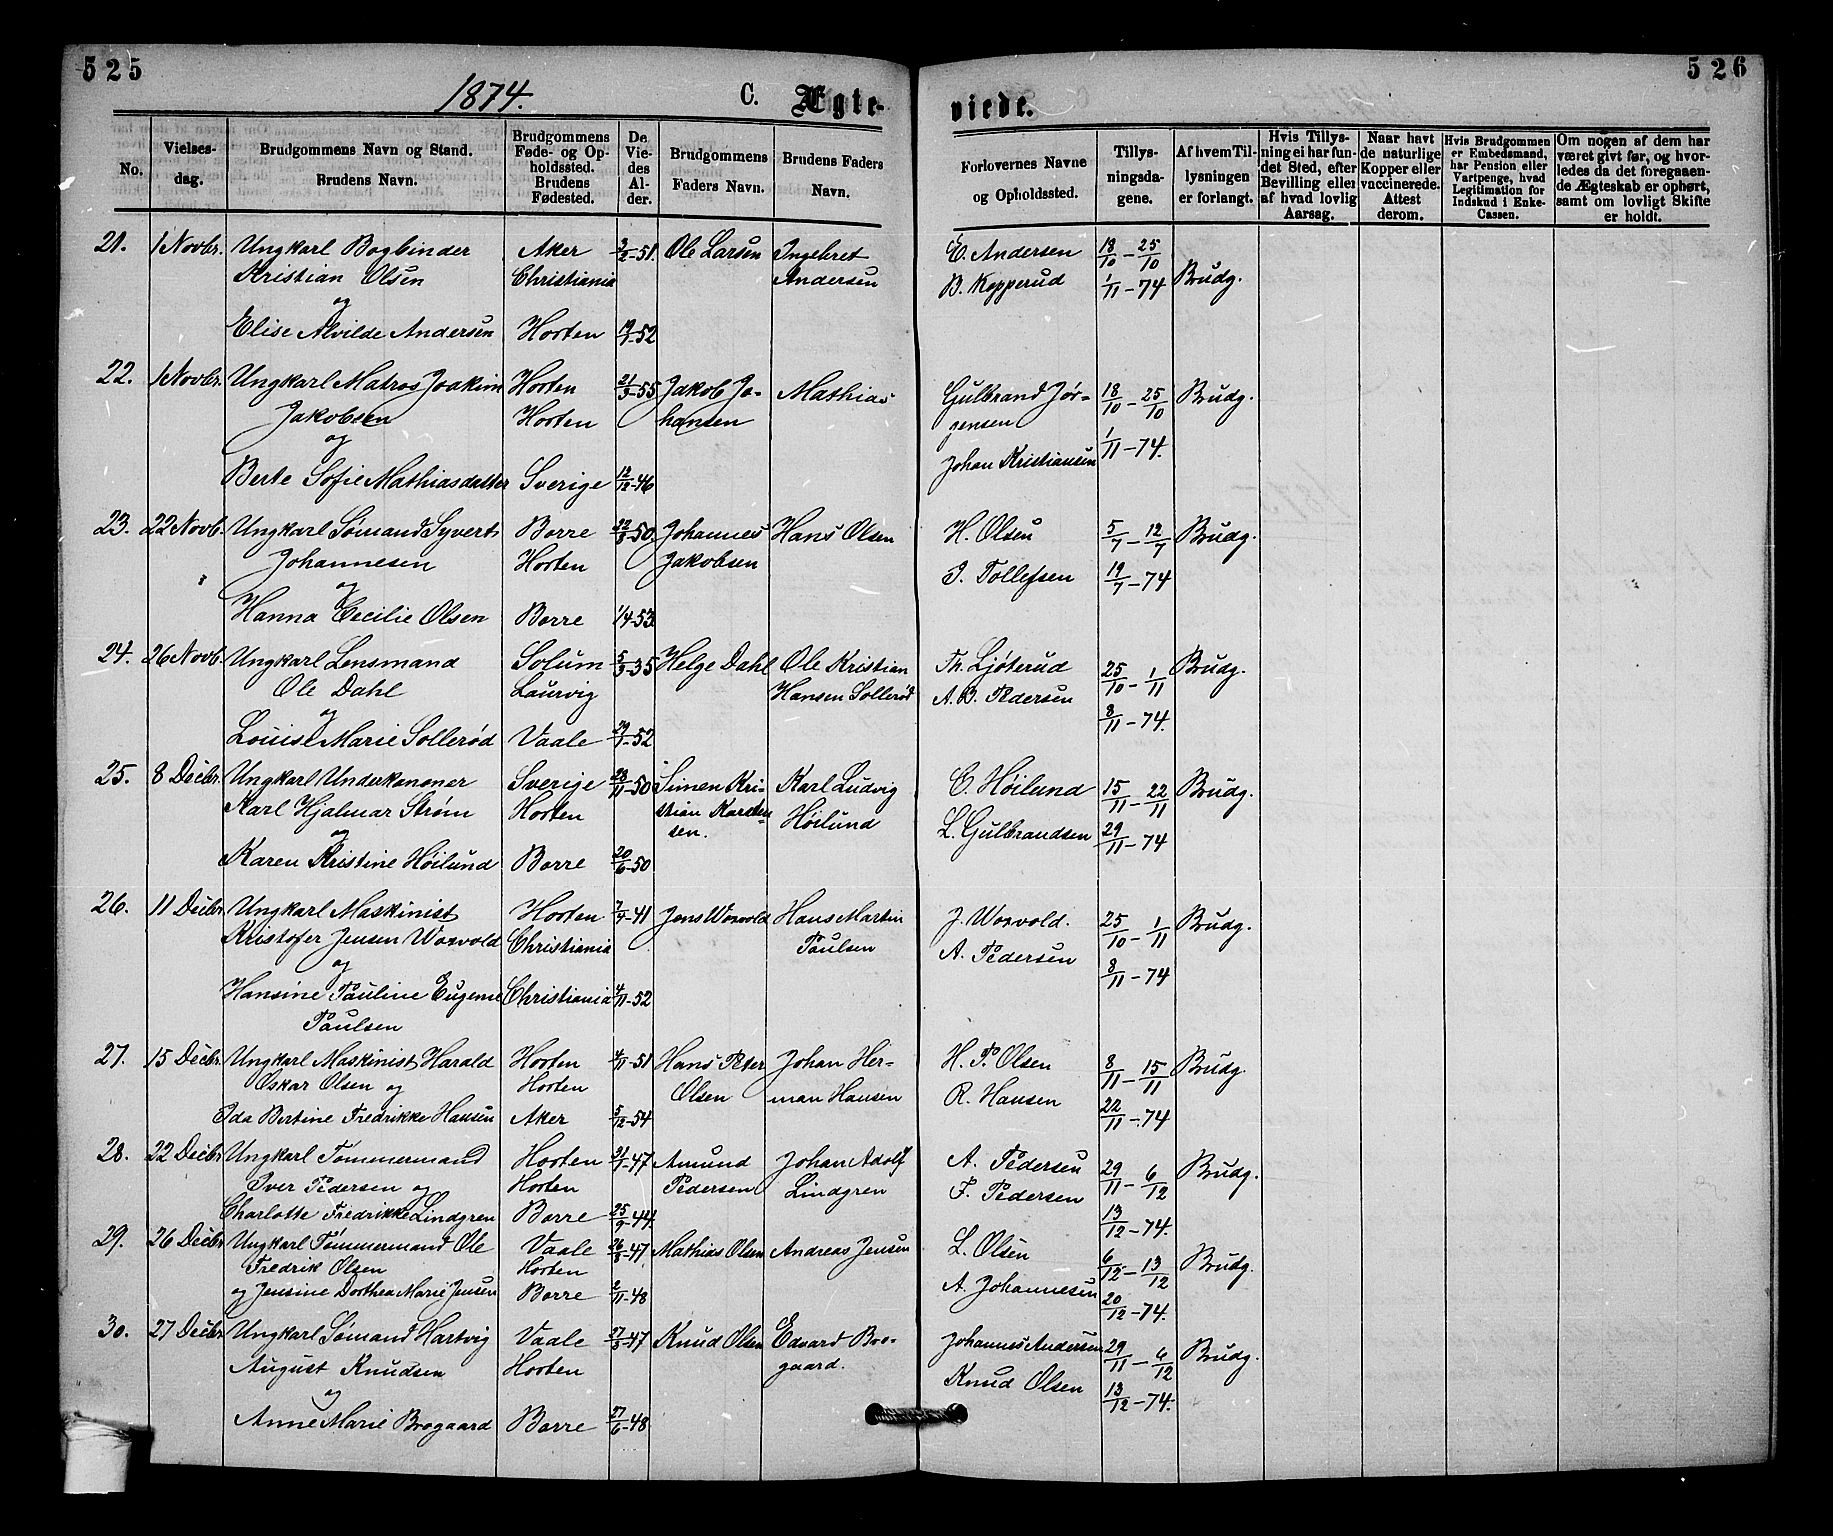 525
526
1874.
C. Ægte-
viede.
No.
Vielses-
dag.
Brudgommens Navn og Stand.
Brudens Navn.
Brudgommens
Føde- og Op-
holdssted.
Brudens
Fødested.
De
Vie-
des
Al-
der.
Brudgommens
Faders Navn.
Brudens Faders
Navn.
Forlovernes Navne
og Opholdssted.
Tillys-
ningsda-
gene.
Af hvem Til-
lysningen
er forlangt.
Hvis Tillys-
ning ei har fun-
det Sted, efter
Bevilling eller
af hvad lovlig
Aarsag.
Naar havt
de naturlige
Kopper eller
vaccinerede.
Attest
derom.
Hvis Brudgommen
er Embedsmand,
har Pension eller
Vartpenge, hvad
Legitimation for
Indskud i Enke-
Cassen.
Om nogen af dem har
været givt før, og hvor-
ledes da det foregaaen-
de Ægteskab er ophørt,
samt om lovligt Skifte
er holdt.
21. 1 Novbr. Ungkarl Bogbinder Aker 3/2-51. Ole Larsen Ingebret E. Andersen 18/10 - 25/10
Kristian Olsen Christiania Andersen B. Kopperud 1/11-74 Brudg.
og
Elise Alvilde Andersen Horten 19/7-52
22. 1 Novbr. Ungkarl Matros Joakim Horten 21/3-55 Jakob Jo- Mathias Gulbrand Jør- 18/10 - 25/10 Brudg.
Jakobsen Horten hansen gensen
og 1/11-74.
Berte Sofie Mathiasdatter Sverige 12/12-46 Johan Kristiansen
23. 22 Novb. Ungkarl Sømand Syvert Borre 22/8-50 Johannes Hans Olsen H. Olsen 5/7 - 12/7 Brudg.
Johannesen Horten Jakobsen P. Tollefsen 19/7-74
og
Hanna Cecilie Olsen Borre 1/4-53
24. 26 Novb. Ungkarl Lensmand Solum 5/3-35 Helge Dahl Ole Kristian Th. Ljøterud 25/10 - 1/11 Brudg.
Ole Dahl Laurvig Hansen Sollerød A. B. Pedersen
og 8/11-74.
Louise Marie Sollerød Vaale 29/7-52
25. 8 Decbr. Ungkarl Underkanoner Sverige 28/11-50 Simen Kri- Karl Ludvig E. Høilund 15/11 - 22/11 Brudg.
Karl Hjalmar Strøm Horten stian Karsten- Høilund L. Gulbrandsen 29/11-74
og sen.
Karen Kristine Høilund Borre 20/6-50
26. 11 Decbr. Ungkarl Maskinist Horten 7/7-41 Jens Worvold Hans Martin J. Worvold. 25/10 - 1/11 Brudg.
Kristofer Jensen Worvold Christiania Paulsen A. Pedersen
og 8/11-74
Hansine Pauline Eugenie Christiania 4/11-52
Paulsen
27. 15 Decbr. Ungkarl Maskinist Harald Horten 4/11-51 Hans Peter Johan Her- H. P. Olsen 8/11 - 15/11 Brudg.
Oskar Olsen og Horten Olsen man Hansen R. Hansen
Ida Bertine Fredrikke Hansen Aker 5/12-54 22/11-74
28. 22 Decbr. Ungkarl Tømmermand Horten 21/7-47 Amund Johan Adolf A. Pedersen 29/11 - 6/12 Brudg.
Iver Pedersen og Horten Pedersen Lindgren F. Pedersen
Charlotte Fredrikke Lindgren Borre 25/9-44 13/12-74.
29. 26 Decbr. Ungkarl Tømmermand Ole Vaale 26/8-47 Mathias Olsen Andreas Jensen L. Olsen 6/12 - 13/12 Brudg.
Fredrik Olsen Horten
og Jensine Dorthea Marie Jensen Borre 2/11-48 A. Johannesen 20/12-74.
30. 27 Decbr. Ungkarl Sømand Hartvig Vaale 27/8-47 Knud Olsen Edvard Bro- Johannes Andersen 29/11 - 6/12 Brudg.
August Knudsen Horten gaard. Knud Olsen
og 13/12-74.
Anne Marie Brogaard Borre 27/6-48